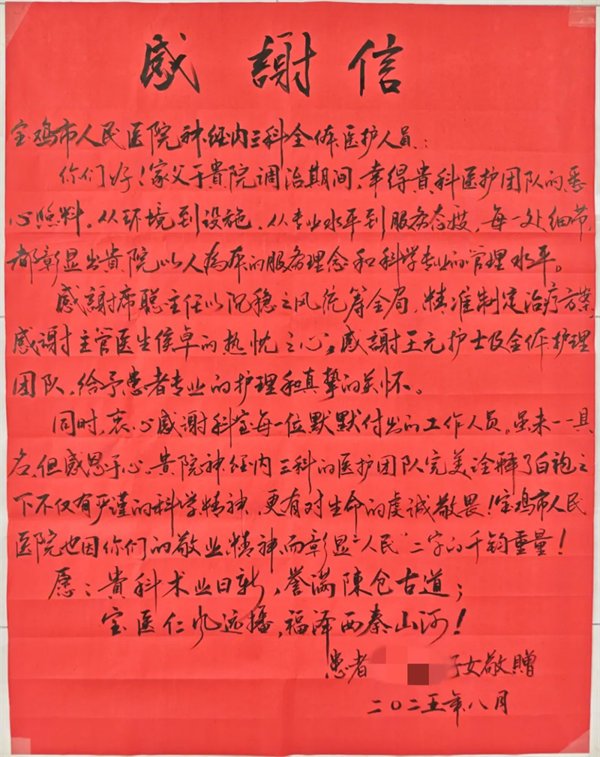 感謝信
宝鸡市人民医院神经内三科全体医护人员：
你们好！家父于貴院调治期间，幸得貴科医护团队的悉
心照料，从环境到设施，从专业水平到服务态度，每一处细节，
都彰显出贵院以人為本的服务理念和科学专业的管理水平。
感謝席聪主任以沉稳之风统筹全局，精准制定治疗方案
感谢主管医生侯卓的热忱之心，感謝王元护士及全体护理
团队，给予患者专业的护理和真摯的关怀。
同时，衷心感谢科室每一位默默付出的工作人员。虽未一一具
名，但感恩于心。贵院神经内三科的医护团队完美诠释了白袍之
下不仅有严谨的科学精神，更有对生命的虔诚敬畏！宝鸡市人民
医院也因你们的敬业精神而彰显"人民"二字的千钧重量！
愿：貴科术业日新，誉满陳仓古道；
宝医仁风远播，福泽西秦山河！
患者 子女敬贈
二〇二五年八月